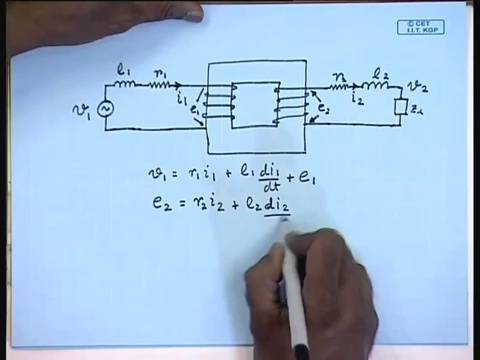 © CET
I.I.T. KGP
l₁ r₁ r₂ l₂
v₁ i₁ e₁ e₂ i₂ v₂ Z_L
v₁ = r₁i₁ + l₁ di₁/dt + e₁
e₂ = r₂i₂ + l₂ di₂